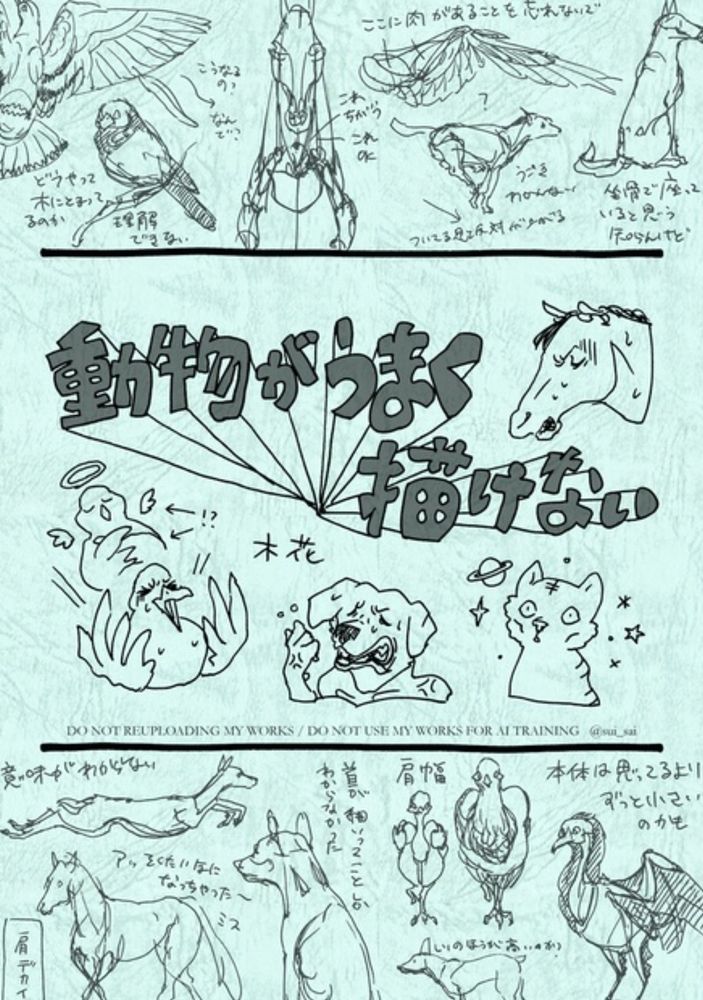 ここに肉があることを忘れないで
こうなる
の？
なん
で？
これ
ちがう
これ
OK
？
うごき
わかんない
どうやって
木にとまって
るのか
理解
できない
坐骨で座って
いると思う
知らんけど
動物がうまく
描けない
!?
木花
DO NOT REUPLOADING MY WORKS / DO NOT USE MY WORKS FOR AI TRAINING @sui_sai
意味がわからない
首が細いってこととか
わからなかった
肩幅
本体は思ってるより
ずっと小さい
のかも
なっちゃった〜
ミス
肩デカイ